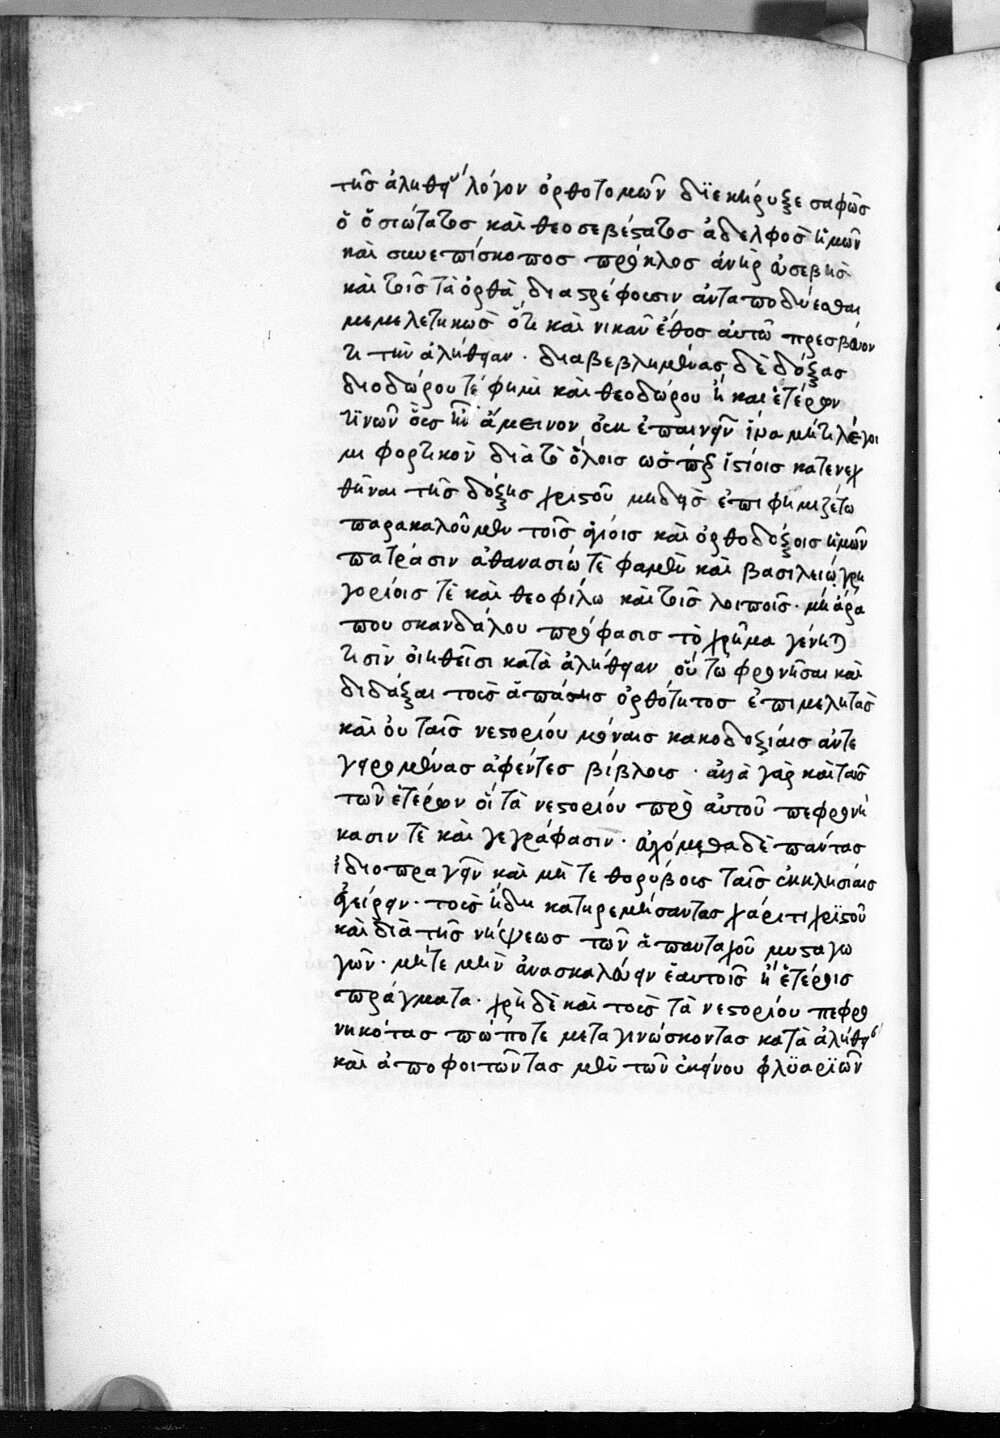 τῆς ἀληθείας λόγον ὀρθοτομῶν διεκήρυξε σαφῶς
ὁ ὁσιώτατος καὶ θεοσεβέστατος ἀδελφὸς ἡμῶν
καὶ συνεπίσκοπος πρόκλος ἀνὴρ εὐσεβὴς
καὶ τοῖς τὰ ὀρθὰ διαστρέφουσιν ἀνταποδύεσθαι
μεμελετηκὼς ὅτι καὶ νικᾶν ἔθος αὐτῶ πρεσβεύον
τι τὴν ἀλήθειαν · διαβεβλημένας δὲ δόξας
διοδώρου τέ φημι καὶ θεοδώρου ἢ καὶ ἑτέρων
τινῶν οἷς ἦν ἄμεινον οὐκ ἐπαινεῖν ἵνα μή τι λέγοι
μι φορτικὸν διὰ τὸ ὅλοις ὥσπερ ἱστίοις κατενεχ
θῆναι τῆς δόξης χριστοῦ μηδεὶς ἐπιφημιζέτω
παρακαλοῦμεν τοῖς ἁγίοις καὶ ὀρθοδόξοις ἡμῶν
πατράσιν ἀθανασίω τὲ φαμὲν καὶ βασιλείω γρη
γορίοις τὲ καὶ θεοφίλω καὶ τοῖς λοιποῖς · μὴ ἄρα
που σκανδάλου πρόφασις τὸ χρῆμα γένηται
τισὶν οἰηθεῖσι κατὰ ἀλήθειαν οὕτω φρονῆσαι καὶ
διδάξαι τοὺς ἁπάσης ὀρθότητος ἐπιμελητὰς
καὶ οὐ ταῖς νεστορίου μόναις κακοδοξίαις ἀντε
γηγερμένας ἀφέντες βίβλοις · ἀλλὰ γὰρ καὶ ταῖς
τῶν ἑτέρων οἳ τὰ νεστορίου πρὸ αὐτοῦ πεφρονή
κασιν τὲ καὶ γεγράφασιν · εὐχόμεθα δὲ πάντας
ἰδιοπραγεῖν καὶ μήτε θορύβοις ταῖς ἐκκλησίαις
ἐγείρειν · τοὺς ἤδη κατηρεμήσαντας χάριτι χριστοῦ
καὶ διὰ τῆς νήψεως τῶν ἁπανταχοῦ μυσταγω
γῶν · μήτε μὴν ἀνασκαλεύειν ἑαυτοῖς ἢ ἑτέροις
πράγματα · χρὴ δὲ καὶ τοὺς τὰ νεστορίου πεφρο
νηκότας πώποτε μεταγινώσκοντας κατὰ ἀλήθειαν
καὶ ἀποφοιτῶντας μὲν τῶν ἐκείνου φλυαριῶν